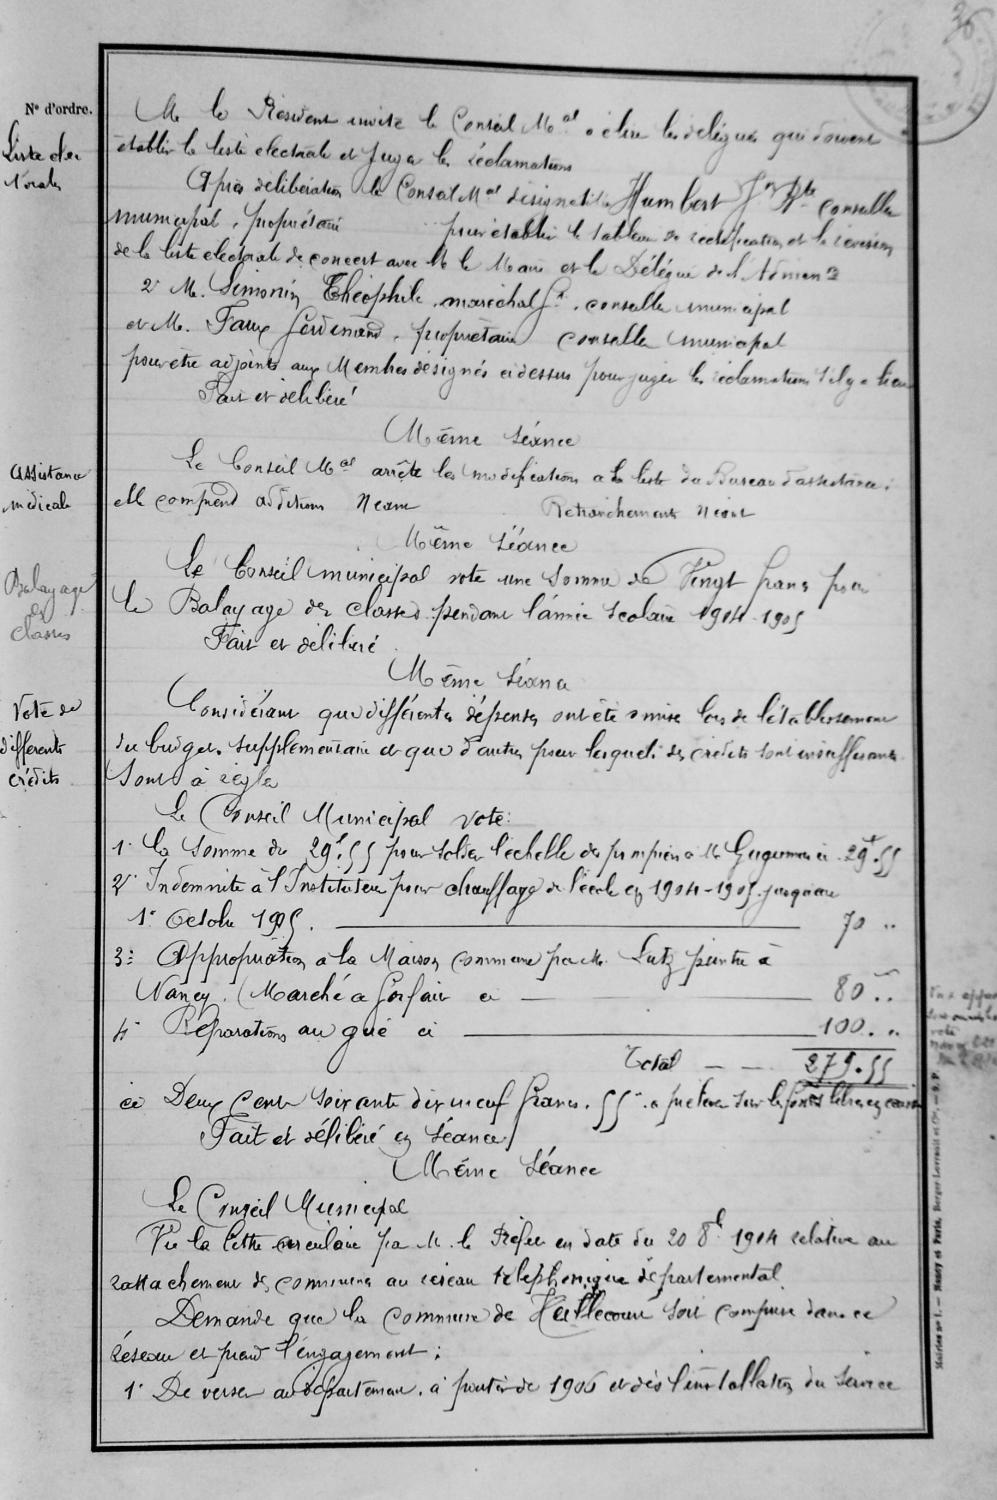 36
N° d'ordre.
Liste élec
torale
M. le Président invite le Conseil Mal a élire les délégués qui doivent
établir la liste électorale et juger les réclamations
Après délibération le Conseil Mal désigne M. Humbert Jn Bte conseiller
municipal, propriétaire pour établir le tableau de rectification et la révision
de la liste électorale de concert avec M le Maire et le Délégué de l'Admion
2° M. Simonin Théophile, maréchal ft, conseiller municipal
et M. Faux Ferdinand, propriétaire conseiller municipal
pour être adjoints aux Membres désignés ci dessus pour juger les réclamations s'il y a lieu
Fait et délibéré
Même séance
Assistance
médicale
Le Conseil Mal arrête les modifications a la liste du Bureau d'assistance:
elle comprend additions Néant Retranchements néant
Même séance
Balayage
des
classes
Le Conseil municipal vote une somme de Vingt francs pour
le Balayage des classes pendant l'année scolaire 1904-1905
Fait et délibéré
Même séance
Vote de
différents
crédits
Considérant que différentes dépenses ont été omise lors de l'établissement
du budget supplémentaire et que d'autres pour lesquels des crédits sont insuffisants
sont à régler
Le Conseil Municipal vote:
1° la somme de 29f.55 pour solder l'échelle des pompiers à M. ci 29f.55
2° Indemnité à l'Instituteur pour chauffage de l'école en 1904-1905 jusqu'au
1er Octobre 1905. 70 "
3° Appropriation a la Maison commune par M. Lutz peintre à
Nancy. (Marché a forfait ci 80 "
4° Réparations au gué ci 100. "
Total 279.55
ci Deux cent soixante dix neuf francs. 55 à prélever sur les fonds libres en caisse
Fait et délibéré en séance
Même Séance
Le Conseil Municipal
Vu la lettre circulaire par M. le Préfet en date du 20 8e 1904 relative au
rattachement des communes au réseau téléphonique départemental
Demande que la commune de Heillecourt soit comprise dans ce
réseau et prend l'engagement:
1° De verser au département, à partir de 1906 et dès l'installation du service
Vu & app
vote
Mairies n° 1. — Nancy et Paris, Berger-Levrault et Cie. — S. P.